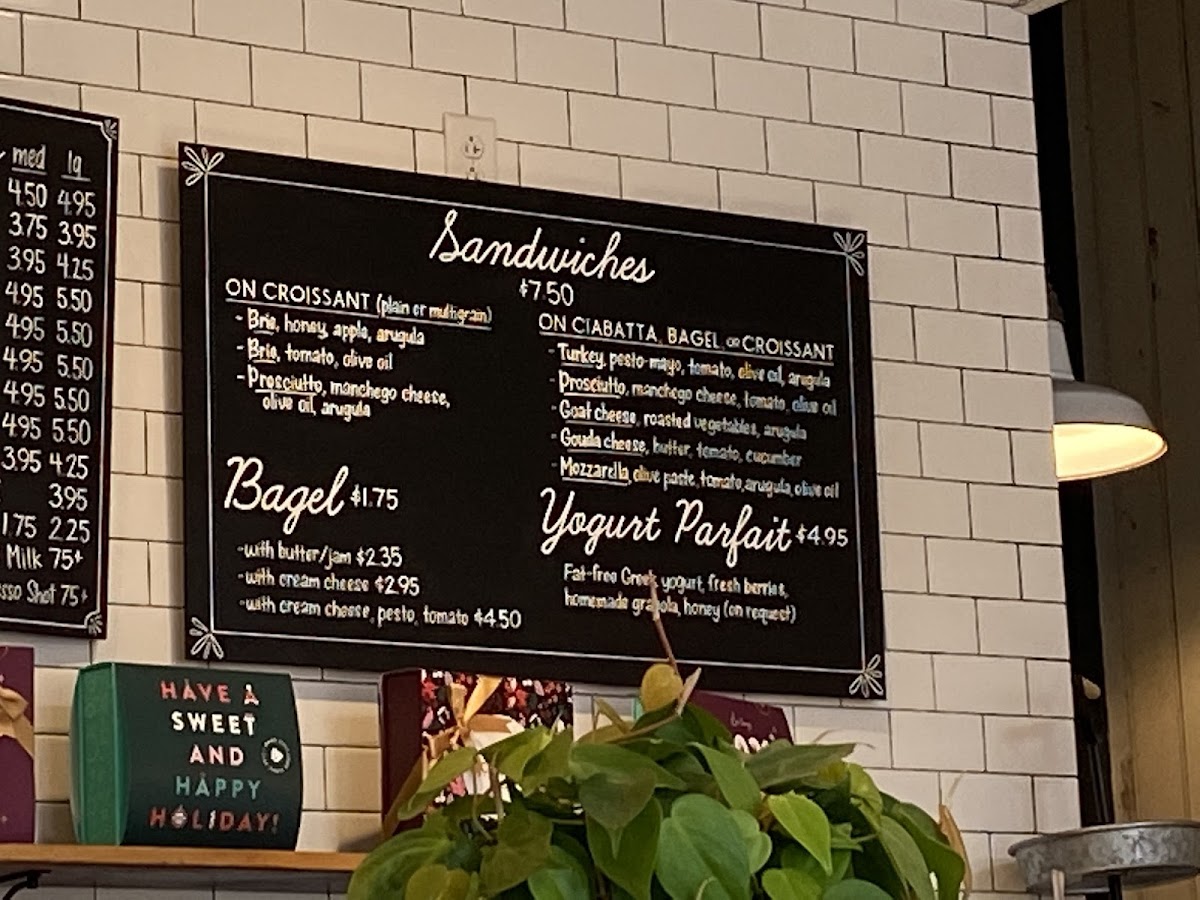 med lg
4.50 4.95
3.75 3.95
3.95 4.25
4.95 5.50
4.95 5.50
4.95 5.50
4.95 5.50
4.95 5.50
3.95 4.25
3.95
1.75 2.25
Milk 75¢
Shot 75¢
Sandwiches
$7.50
ON CROISSANT (plain or multigrain)
- Brie, honey, apple, arugula
- Brie, tomato, olive oil
- Prosciutto, manchego cheese,
olive oil, arugula
Bagel $1.75
-with butter/jam $2.35
-with cream cheese $2.95
-with cream cheese, pesto, tomato $4.50
ON CIABATTA, BAGEL, OR CROISSANT
- Turkey, pesto-mayo, tomato, olive oil, arugula
- Prosciutto, manchego cheese, tomato, olive oil
- Goat cheese, roasted vegetables, arugula
- Gouda cheese, butter, tomato, cucumber
- Mozzarella, olive paste, tomato, arugula, olive oil
Yogurt Parfait $4.95
Fat-free Greek yogurt, fresh berries,
homemade granola, honey (on request)
HAVE A
SWEET
AND
HAPPY
HOLIDAY!